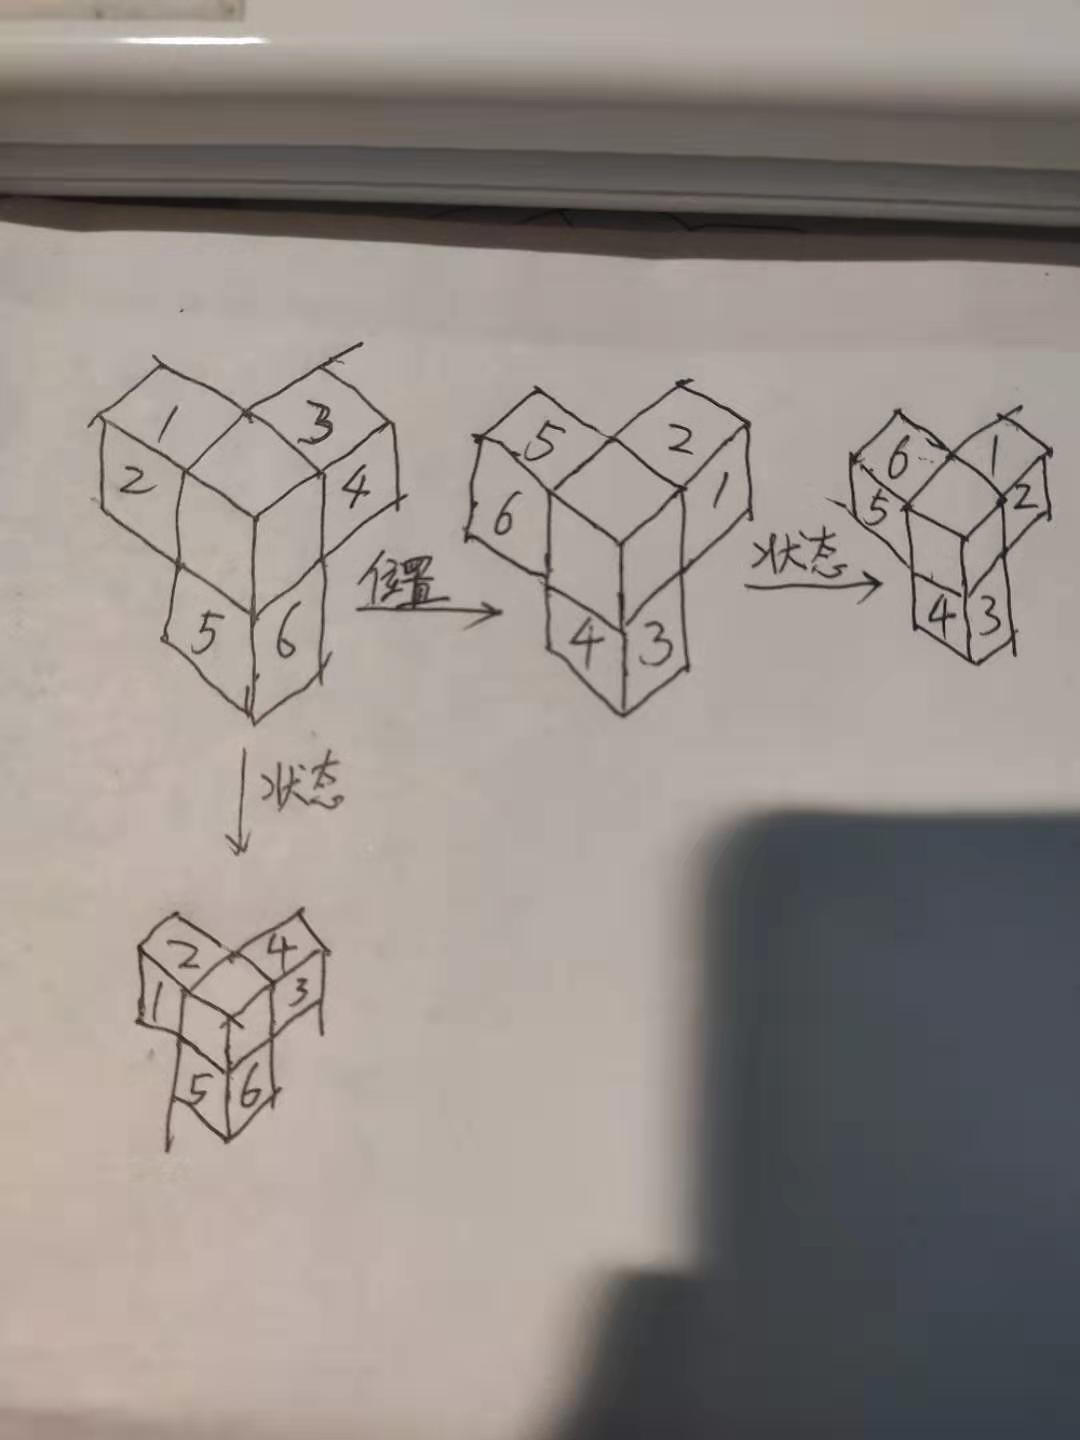 1 3
2 4
5 6
位置
5 2
6 1
4 3
状态
6 1
5 2
4 3
状态
2 4
1 3
5 6